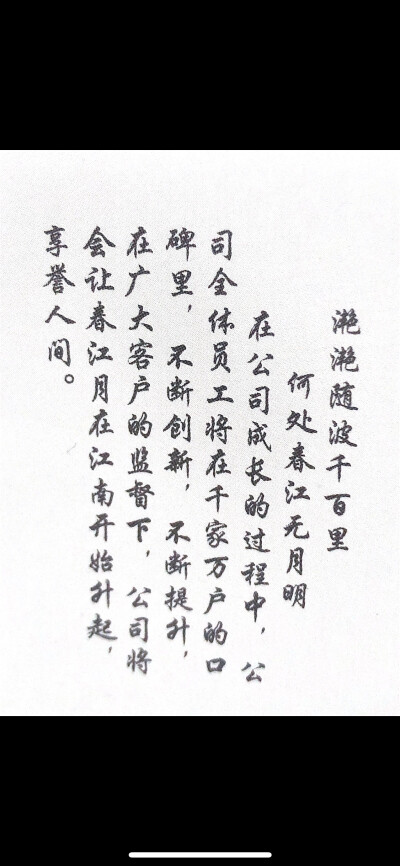 滟滟随波千百里
何处春江无月明
在公司成长的过程中，公
司全体员工将在千家万户的口
碑里，不断创新，不断提升，
在广大客户的监督下，公司将
会让春江月在江南开始升起，
享誉人间。